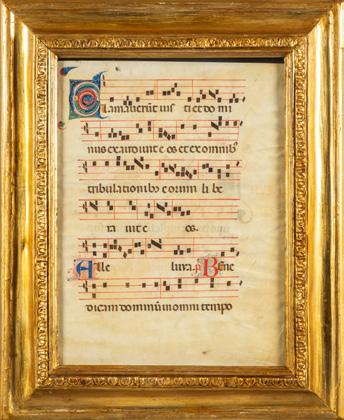 Clamaverūt ius ti et do mi
nus exaudiuit e os et ex omnibꝰ
tribulationibꝰ eorum li be
ra uit e os.
Alle luya. ℣ Bene
dicam dominū in omni tempo